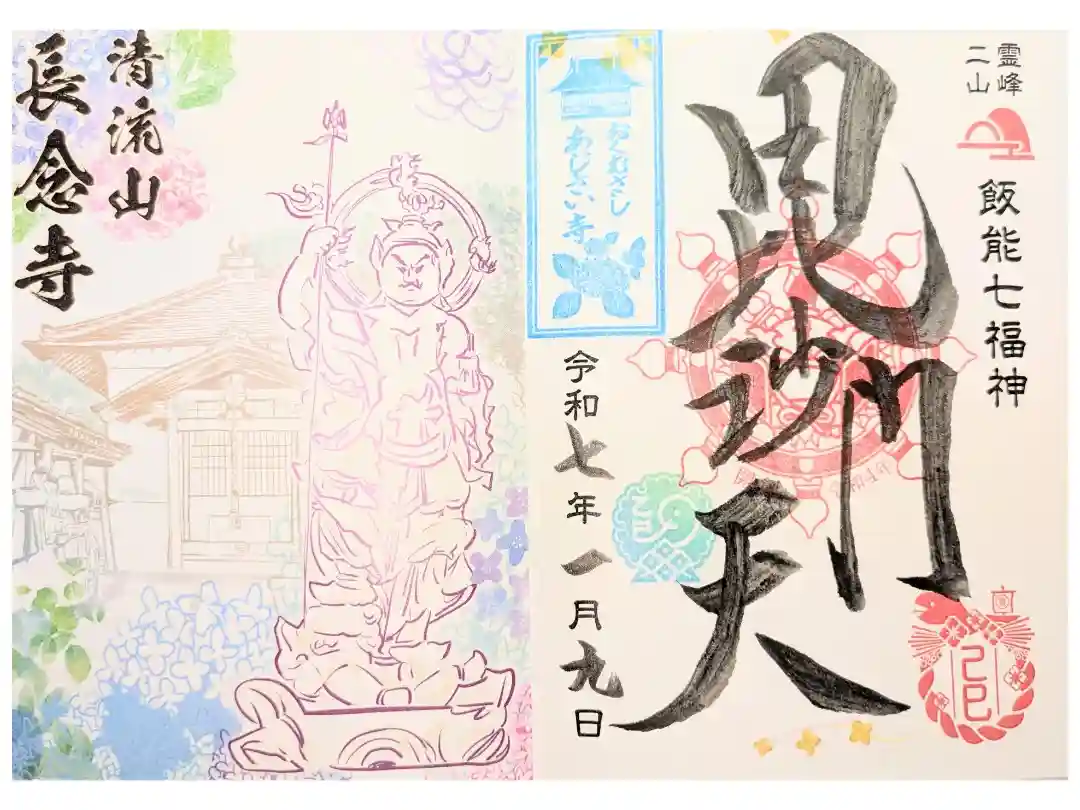 霊峰
二山
飯能七福神
毘沙門天
おくむさし
あじさい寺
令和七年一月九日
己巳
清流山
長念寺